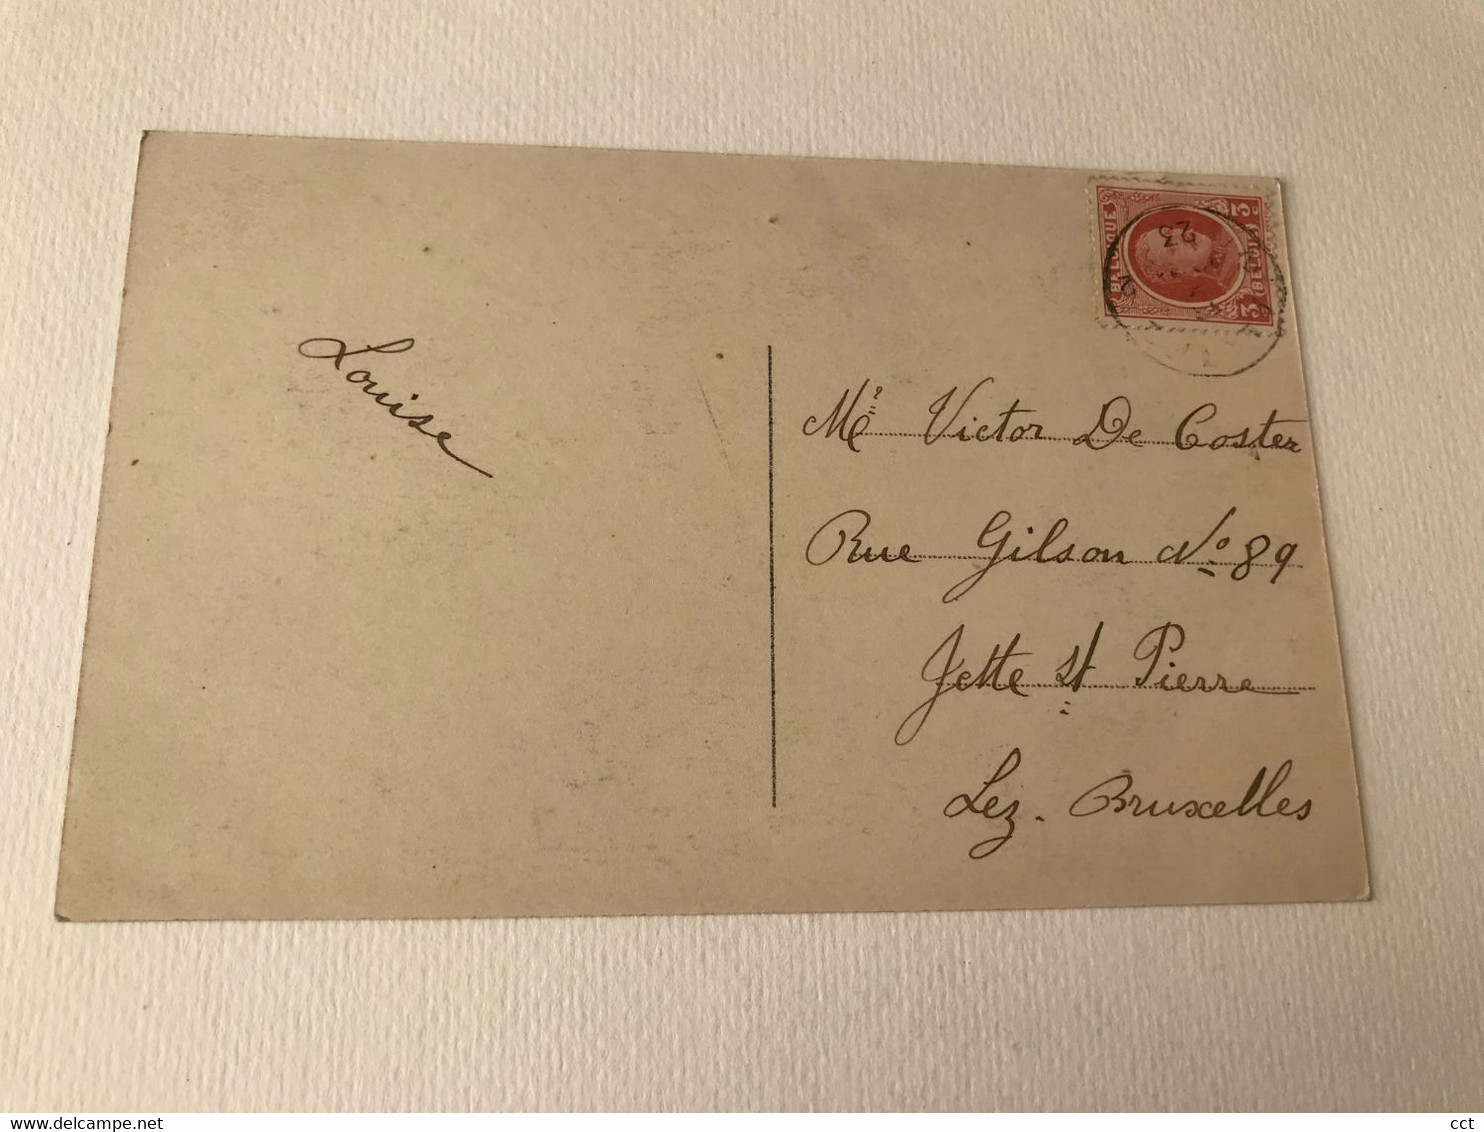 Louise
BELGIQUE
3 c 3
BELGIË
23
Mr Victor De Coster
Rue Gilson No 89
Jette St Pierre
Lez. Bruxelles
cct